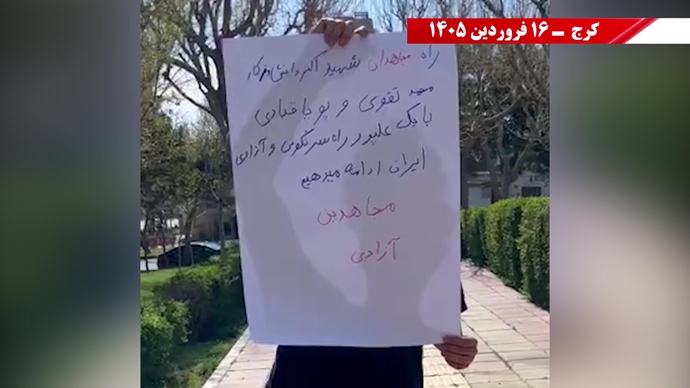 کرج – ۱۶ فروردین ۱۴۰۵
راه مجاهدان شهید اکبر دانشورکار
محمد تقوی و پویا قبادی
بابک علیپور راه سرنگونی و آزادی
ایران ادامه میدهیم
مجاهدین
آزادی